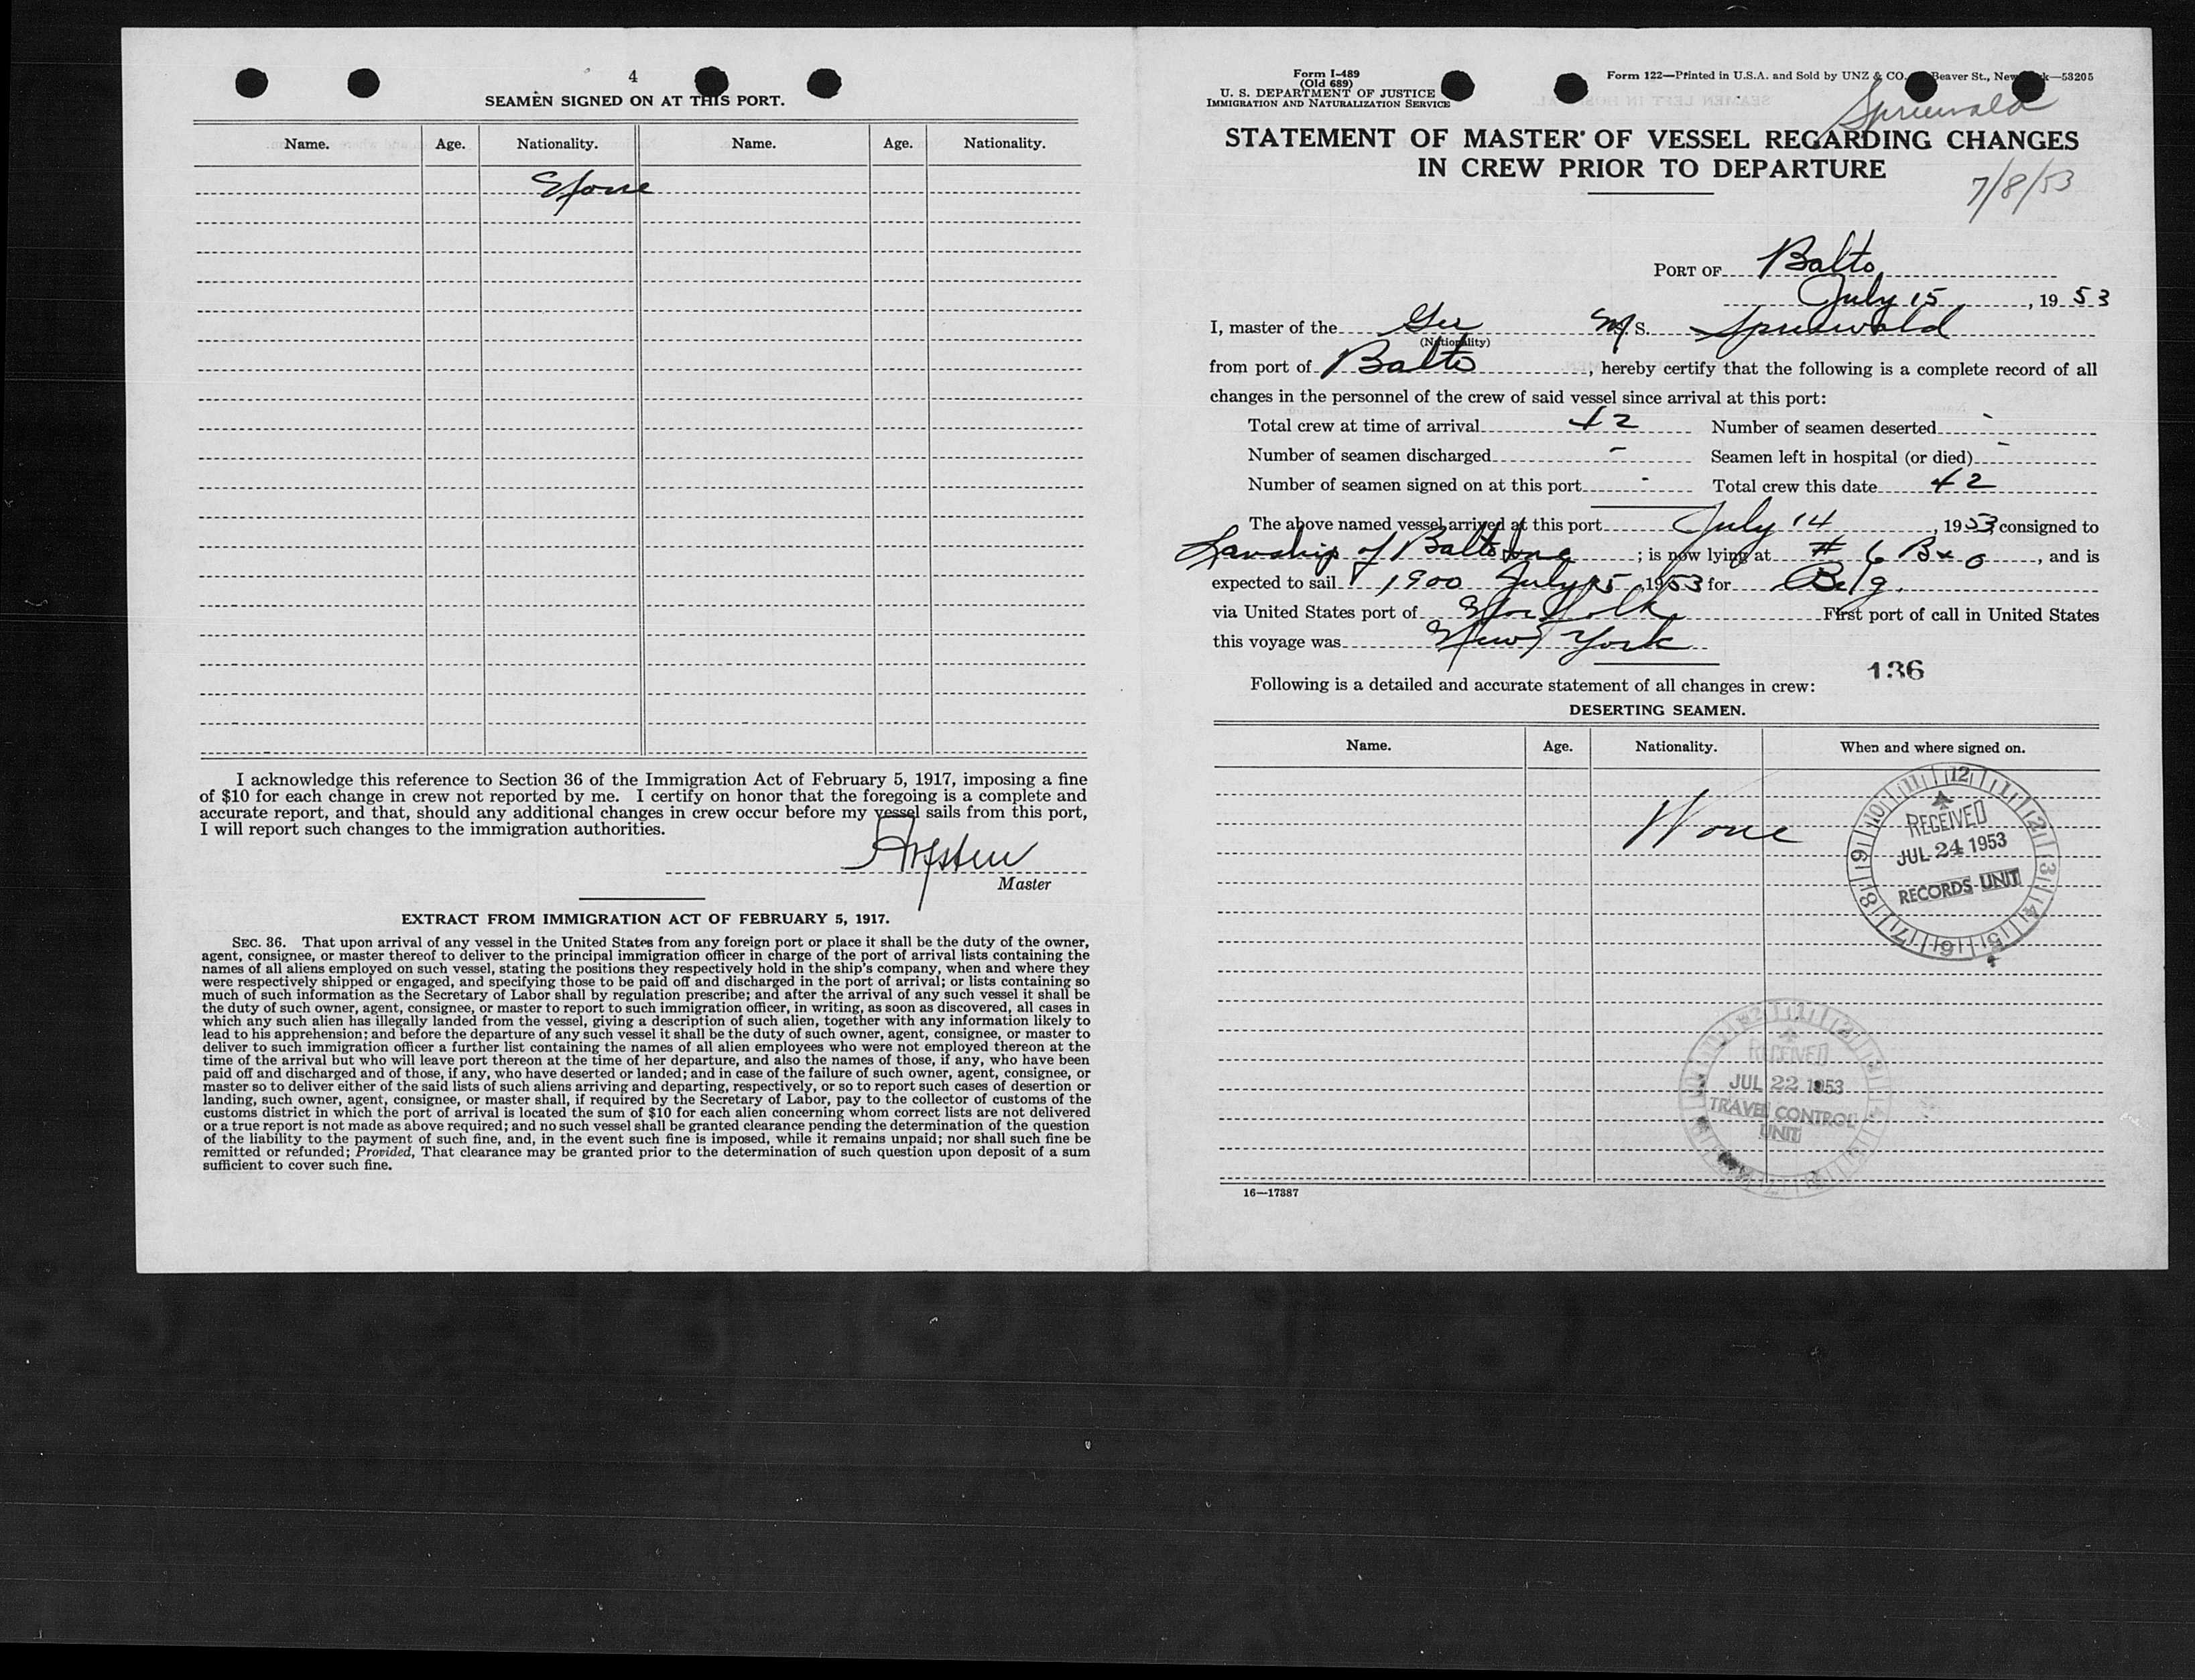 4
SEAMEN SIGNED ON AT THIS PORT.
Name. Age. Nationality. Name. Age. Nationality.
None
I acknowledge this reference to Section 36 of the Immigration Act of February 5, 1917, imposing a fine
of $10 for each change in crew not reported by me. I certify on honor that the foregoing is a complete and
accurate report, and that, should any additional changes in crew occur before my vessel sails from this port,
I will report such changes to the immigration authorities.
Master
EXTRACT FROM IMMIGRATION ACT OF FEBRUARY 5, 1917.
SEC. 36. That upon arrival of any vessel in the United States from any foreign port or place it shall be the duty of the owner,
agent, consignee, or master thereof to deliver to the principal immigration officer in charge of the port of arrival lists containing the
names of all aliens employed on such vessel, stating the positions they respectively hold in the ship's company, when and where they
were respectively shipped or engaged, and specifying those to be paid off and discharged in the port of arrival; or lists containing so
much of such information as the Secretary of Labor shall by regulation prescribe; and after the arrival of any such vessel it shall be
the duty of such owner, agent, consignee, or master to report to such immigration officer, in writing, as soon as discovered, all cases in
which any such alien has illegally landed from the vessel, giving a description of such alien, together with any information likely to
lead to his apprehension; and before the departure of any such vessel it shall be the duty of such owner, agent, consignee, or master to
deliver to such immigration officer a further list containing the names of all alien employees who were not employed thereon at the
time of the arrival but who will leave port thereon at the time of her departure, and also the names of those, if any, who have been
paid off and discharged and of those, if any, who have deserted or landed; and in case of the failure of such owner, agent, consignee, or
master so to deliver either of the said lists of such aliens arriving and departing, respectively, or so to report such cases of desertion or
landing, such owner, agent, consignee, or master shall, if required by the Secretary of Labor, pay to the collector of customs of the
customs district in which the port of arrival is located the sum of $10 for each alien concerning whom correct lists are not delivered
or a true report is not made as above required; and no such vessel shall be granted clearance pending the determination of the question
of the liability to the payment of such fine, and, in the event such fine is imposed, while it remains unpaid; nor shall such fine be
remitted or refunded; Provided, That clearance may be granted prior to the determination of such question upon deposit of a sum
sufficient to cover such fine.
Form I-489
(Old 689)
U. S. DEPARTMENT OF JUSTICE
IMMIGRATION AND NATURALIZATION SERVICE
Form 122—Printed in U.S.A. and Sold by UNZ & CO. Beaver St., New York—53205
Spreewald
STATEMENT OF MASTER OF VESSEL REGARDING CHANGES
IN CREW PRIOR TO DEPARTURE
7/8/53
PORT OF Balto
July 15, 1953
I, master of the Ger M. S. Spreewald
(Nationality)
from port of Balto, hereby certify that the following is a complete record of all
changes in the personnel of the crew of said vessel since arrival at this port:
Total crew at time of arrival 42 Number of seamen deserted -
Number of seamen discharged - Seamen left in hospital (or died) -
Number of seamen signed on at this port - Total crew this date 42
The above named vessel arrived at this port July 14, 1953, consigned to
of Balto Inc; is now lying at # 6 B & O, and is
expected to sail 1900 July 15, 1953 for Belg.
via United States port of Norfolk First port of call in United States
this voyage was New York
136
Following is a detailed and accurate statement of all changes in crew:
DESERTING SEAMEN.
Name. Age. Nationality. When and where signed on.
None
RECEIVED
JUL 24 1953
RECORDS UNIT
RECEIVED
JUL 22 1953
TRAVEL CONTROL
UNIT
16—17387